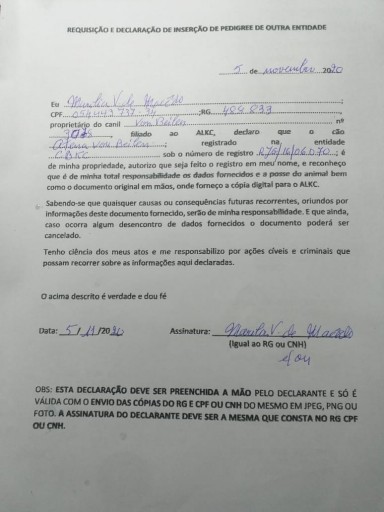 REQUISIÇÃO E DECLARAÇÃO DE INSERÇÃO DE PEDIGREE DE OUTRA ENTIDADE
5 de novembro 2020
Eu Marilia V. de Macedo
CPF ;RG
proprietário do canil Von Beilen nº
, filiado ao ALKC, declaro que o cão
Von Beilen registrado na entidade
CBKC sob o número de registro ; é
de minha propriedade, autorizo que seja feito o registro em meu nome, e reconheço
que é de minha total responsabilidade os dados fornecidos e a posse do animal bem
como o documento original em mãos, onde forneço a cópia digital para o ALKC.
Sabendo-se que quaisquer causas ou consequências futuras recorrentes, oriundos por
informações deste documento fornecido, serão de minha responsabilidade. E que ainda,
caso ocorra algum desencontro de dados fornecidos o documento poderá ser
cancelado.
Tenho ciência dos meus atos e me responsabilizo por ações cíveis e criminais que
possam recorrer sobre as informações aqui declaradas.
O acima descrito é verdade e dou fé
Data: 5/11/2020 Assinatura: Marilia V. de Macedo
(Igual ao RG ou CNH)
OBS: ESTA DECLARAÇÃO DEVE SER PREENCHIDA A MÃO PELO DECLARANTE E SÓ É
VÁLIDA COM O ENVIO DAS CÓPIAS DO RG E CPF OU CNH DO MESMO EM JPEG, PNG OU
FOTO. A ASSINATURA DO DECLARANTE DEVE SER A MESMA QUE CONSTA NO RG CPF
OU CNH.